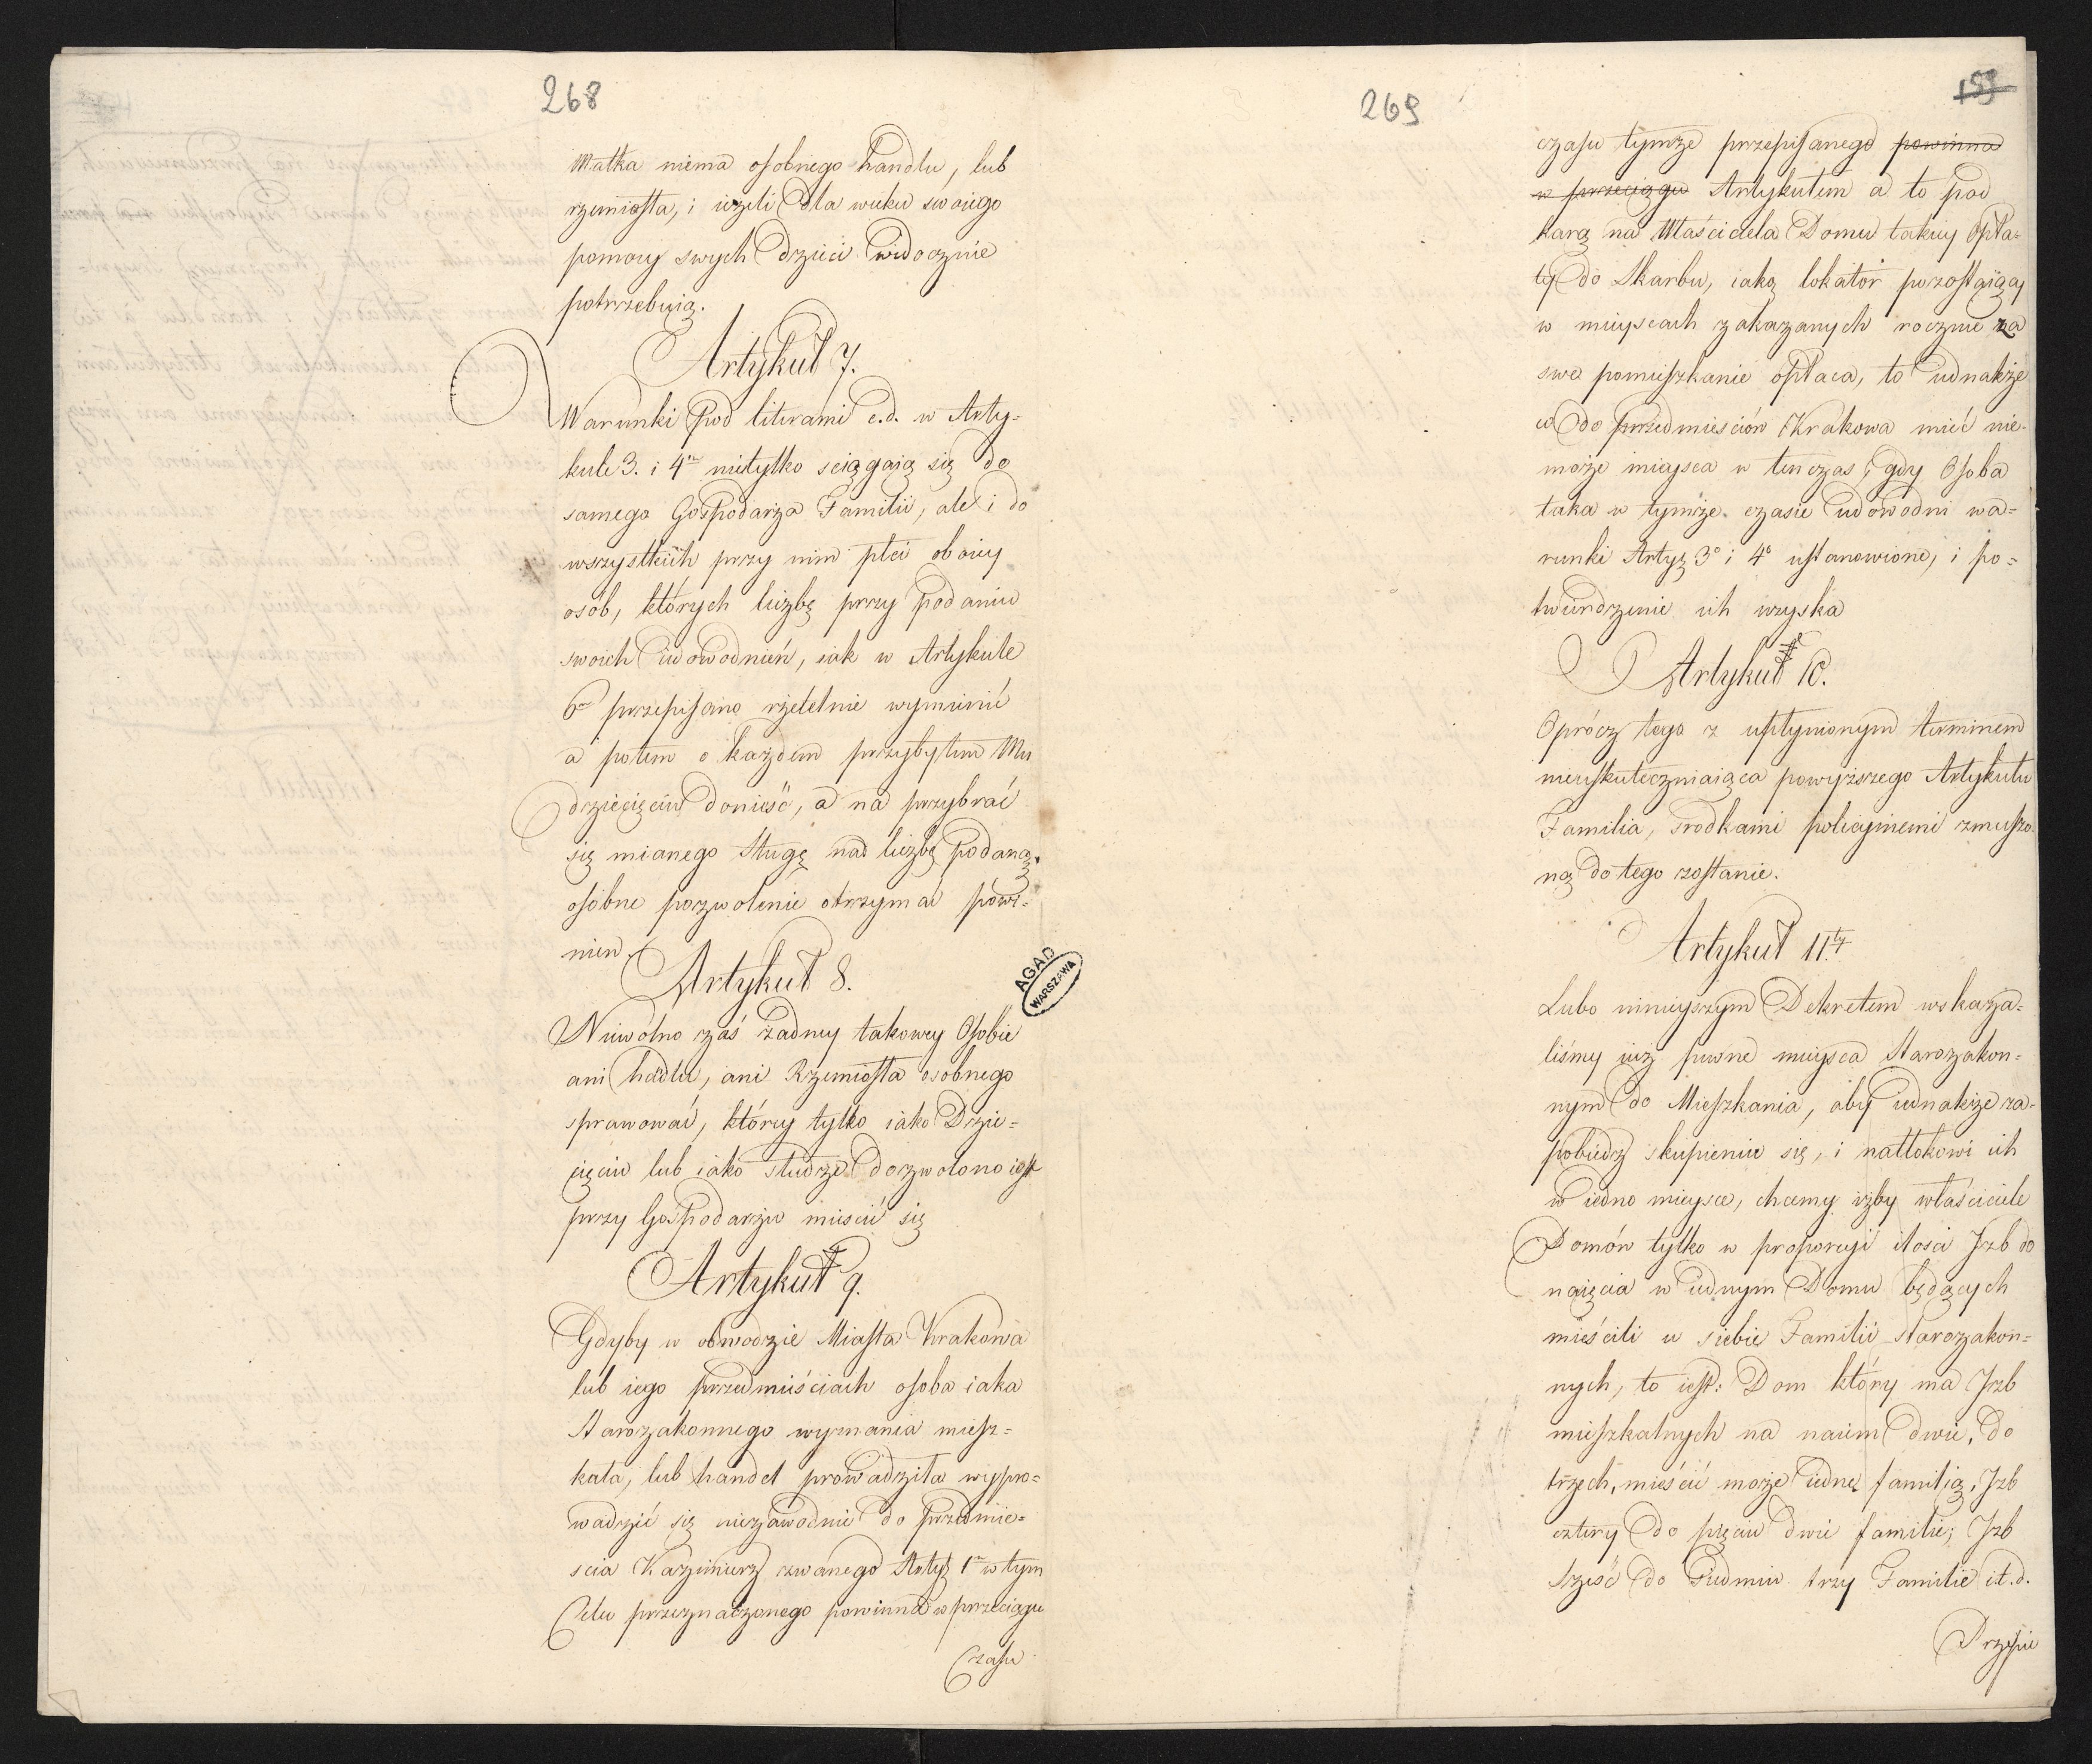 268
Matka niema osobnego handlu, lub
rzemiosła, i ieżeli dla wieku swoiego
pomocy swych dzieci widocznie
potrzebuią.
Artykuł 7.
Warunki pod literami c.d. w Arty-
kule 3. i 4m nietylko sciągaią się do
samego Gospodarza Familii, ale i do
wszystkich przy nim płci oboiey
osób, których liczbę przy podaniu
swoich udowodnień, iak w Artykule
6m przepisano rzetelnie wymienić
a potem o każdem przybyłem Mu
dziecięciu donieść, a na przybrać
się mianego sługę nad liczbę podaną,
osobne pozwolenie otrzymać powi-
nien.
Artykuł 8.
Niewolno zaś żadney takowey Osobie
ani hadlu, ani Rzemiosła osobnego
sprawować, którey tylko iako Dzie-
cięciu lub iako słudze dozwolono iest
przy Gospodarzu mieścić się
Artykuł 9.
Gdyby w obwodzie Miasta Krakowa
lub iego przedmieściach osoba iaka
Starozakonnego wyznania miesz-
kała, lub handel prowadziła wypro-
wadzić się niezawodnie do przedmie-
scia Kazimierz zwanego Artyż 1m w tym
Celu przeznaczonego powinna w przeciągu
Czasu
AGAD
WARSZAWA
269
153
czasu tymże przepisanego powinna
w przeciągu Artykułem a to pod
karą na Właściciela Domu takiey Opła-
ty do Skarbu, iaką lokator pozostaiący
w mieyscach zakazanych rocznie za
swe pomieszkanie opłaca, to iednakże
co do przedmieściów Krakowa mieć nie-
może mieysca w tenczas, gdy Osoba
taka w tymże czasie udowodni wa-
runki Artyż 3o i 4o ustanowione, i po-
twierdzenie ich uzyska
Artykuł 10.
Oprócz tego z upłynionym terminem
nieuskuteczniaiąca powyższego Artykułu
Familia, srodkami policyinemi zmuszo-
ną do tego zostanie.
Artykuł 11ty
Lubo ninieyszym Dekretem wskaza-
liśmy iuż pewne mieysca Starozakon-
nym do Mieszkania, aby iednakże za-
pobiedz skupieniu się, i natłokowi ich
w iedno mieysce, chcemy iżby właściciele
Domów tylko w proporcyi ilosci Jzb do
naięcia w iednym Domu będących
mieścili u siebie Familii Starozakon-
nych, to iest: Dom który ma Jzb
mieszkalnych na naiem dwie, do
trzech, mieścić może iednę familią, Jzb
cztery do pięciu dwie familie; Jzb
sześć do siedmiu trzy Familie it.d.
Przepis